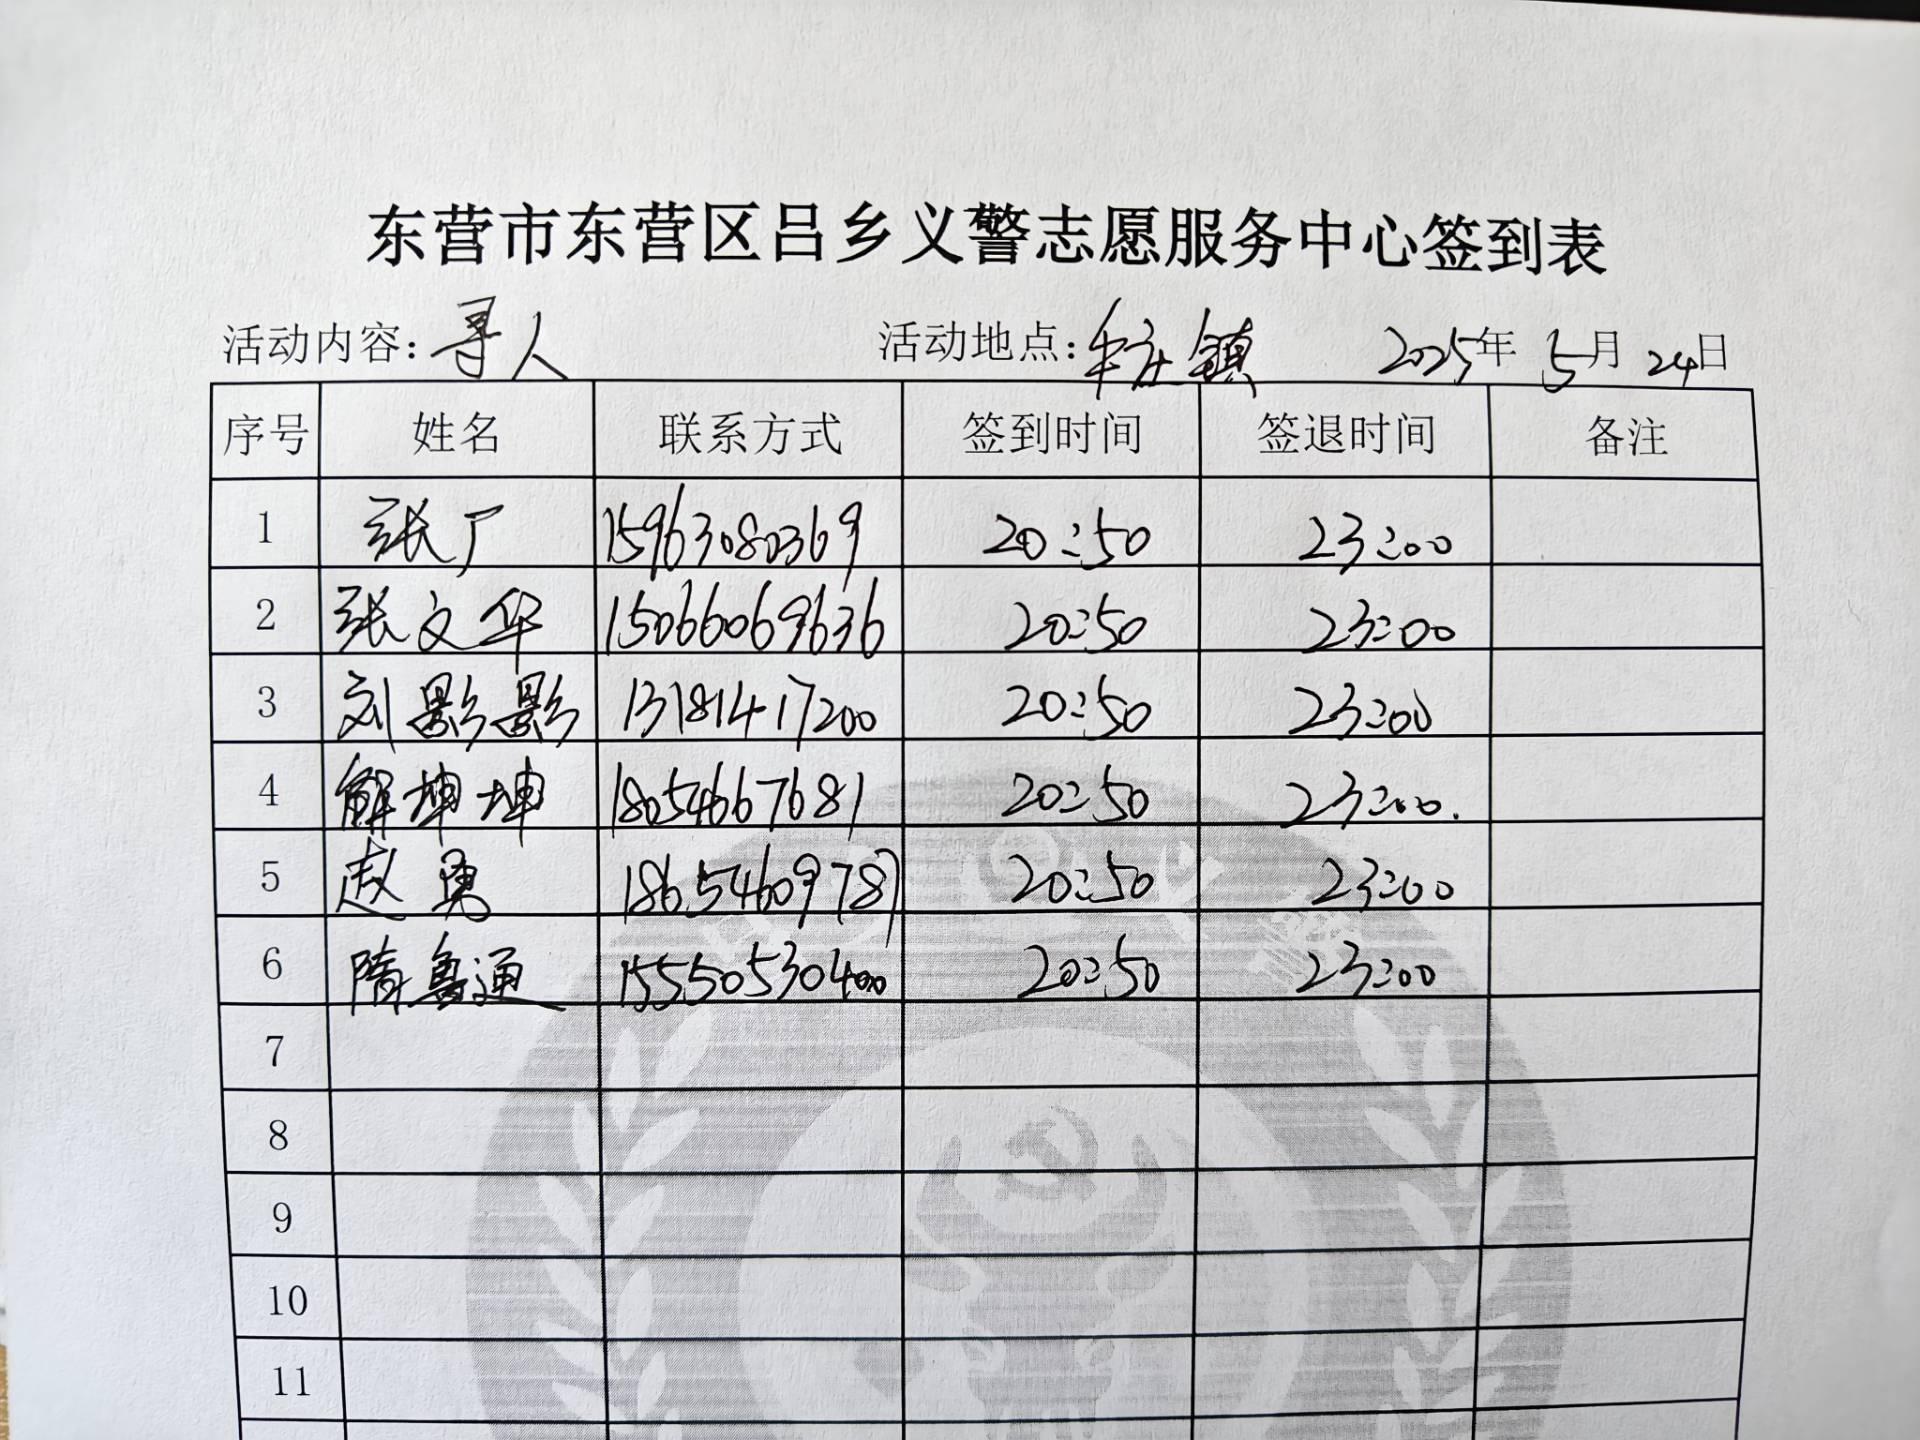 东营市东营区吕乡义警志愿服务中心签到表
活动内容:寻人 活动地点:牛庄镇 2025年 5月 24日
序号 姓名 联系方式 签到时间 签退时间 备注
1 张广 15963080369 20:50 23:00
2 张文华 15066069636 20:50 23:00
3 刘影影 13181417200 20:50 23:00
4 解坤坤 18054667681 20:50 23:00.
5 赵勇 18654609787 20:50 23:00
6 隋鲁通 15550530400 20:50 23:00
7
8
9
10
11